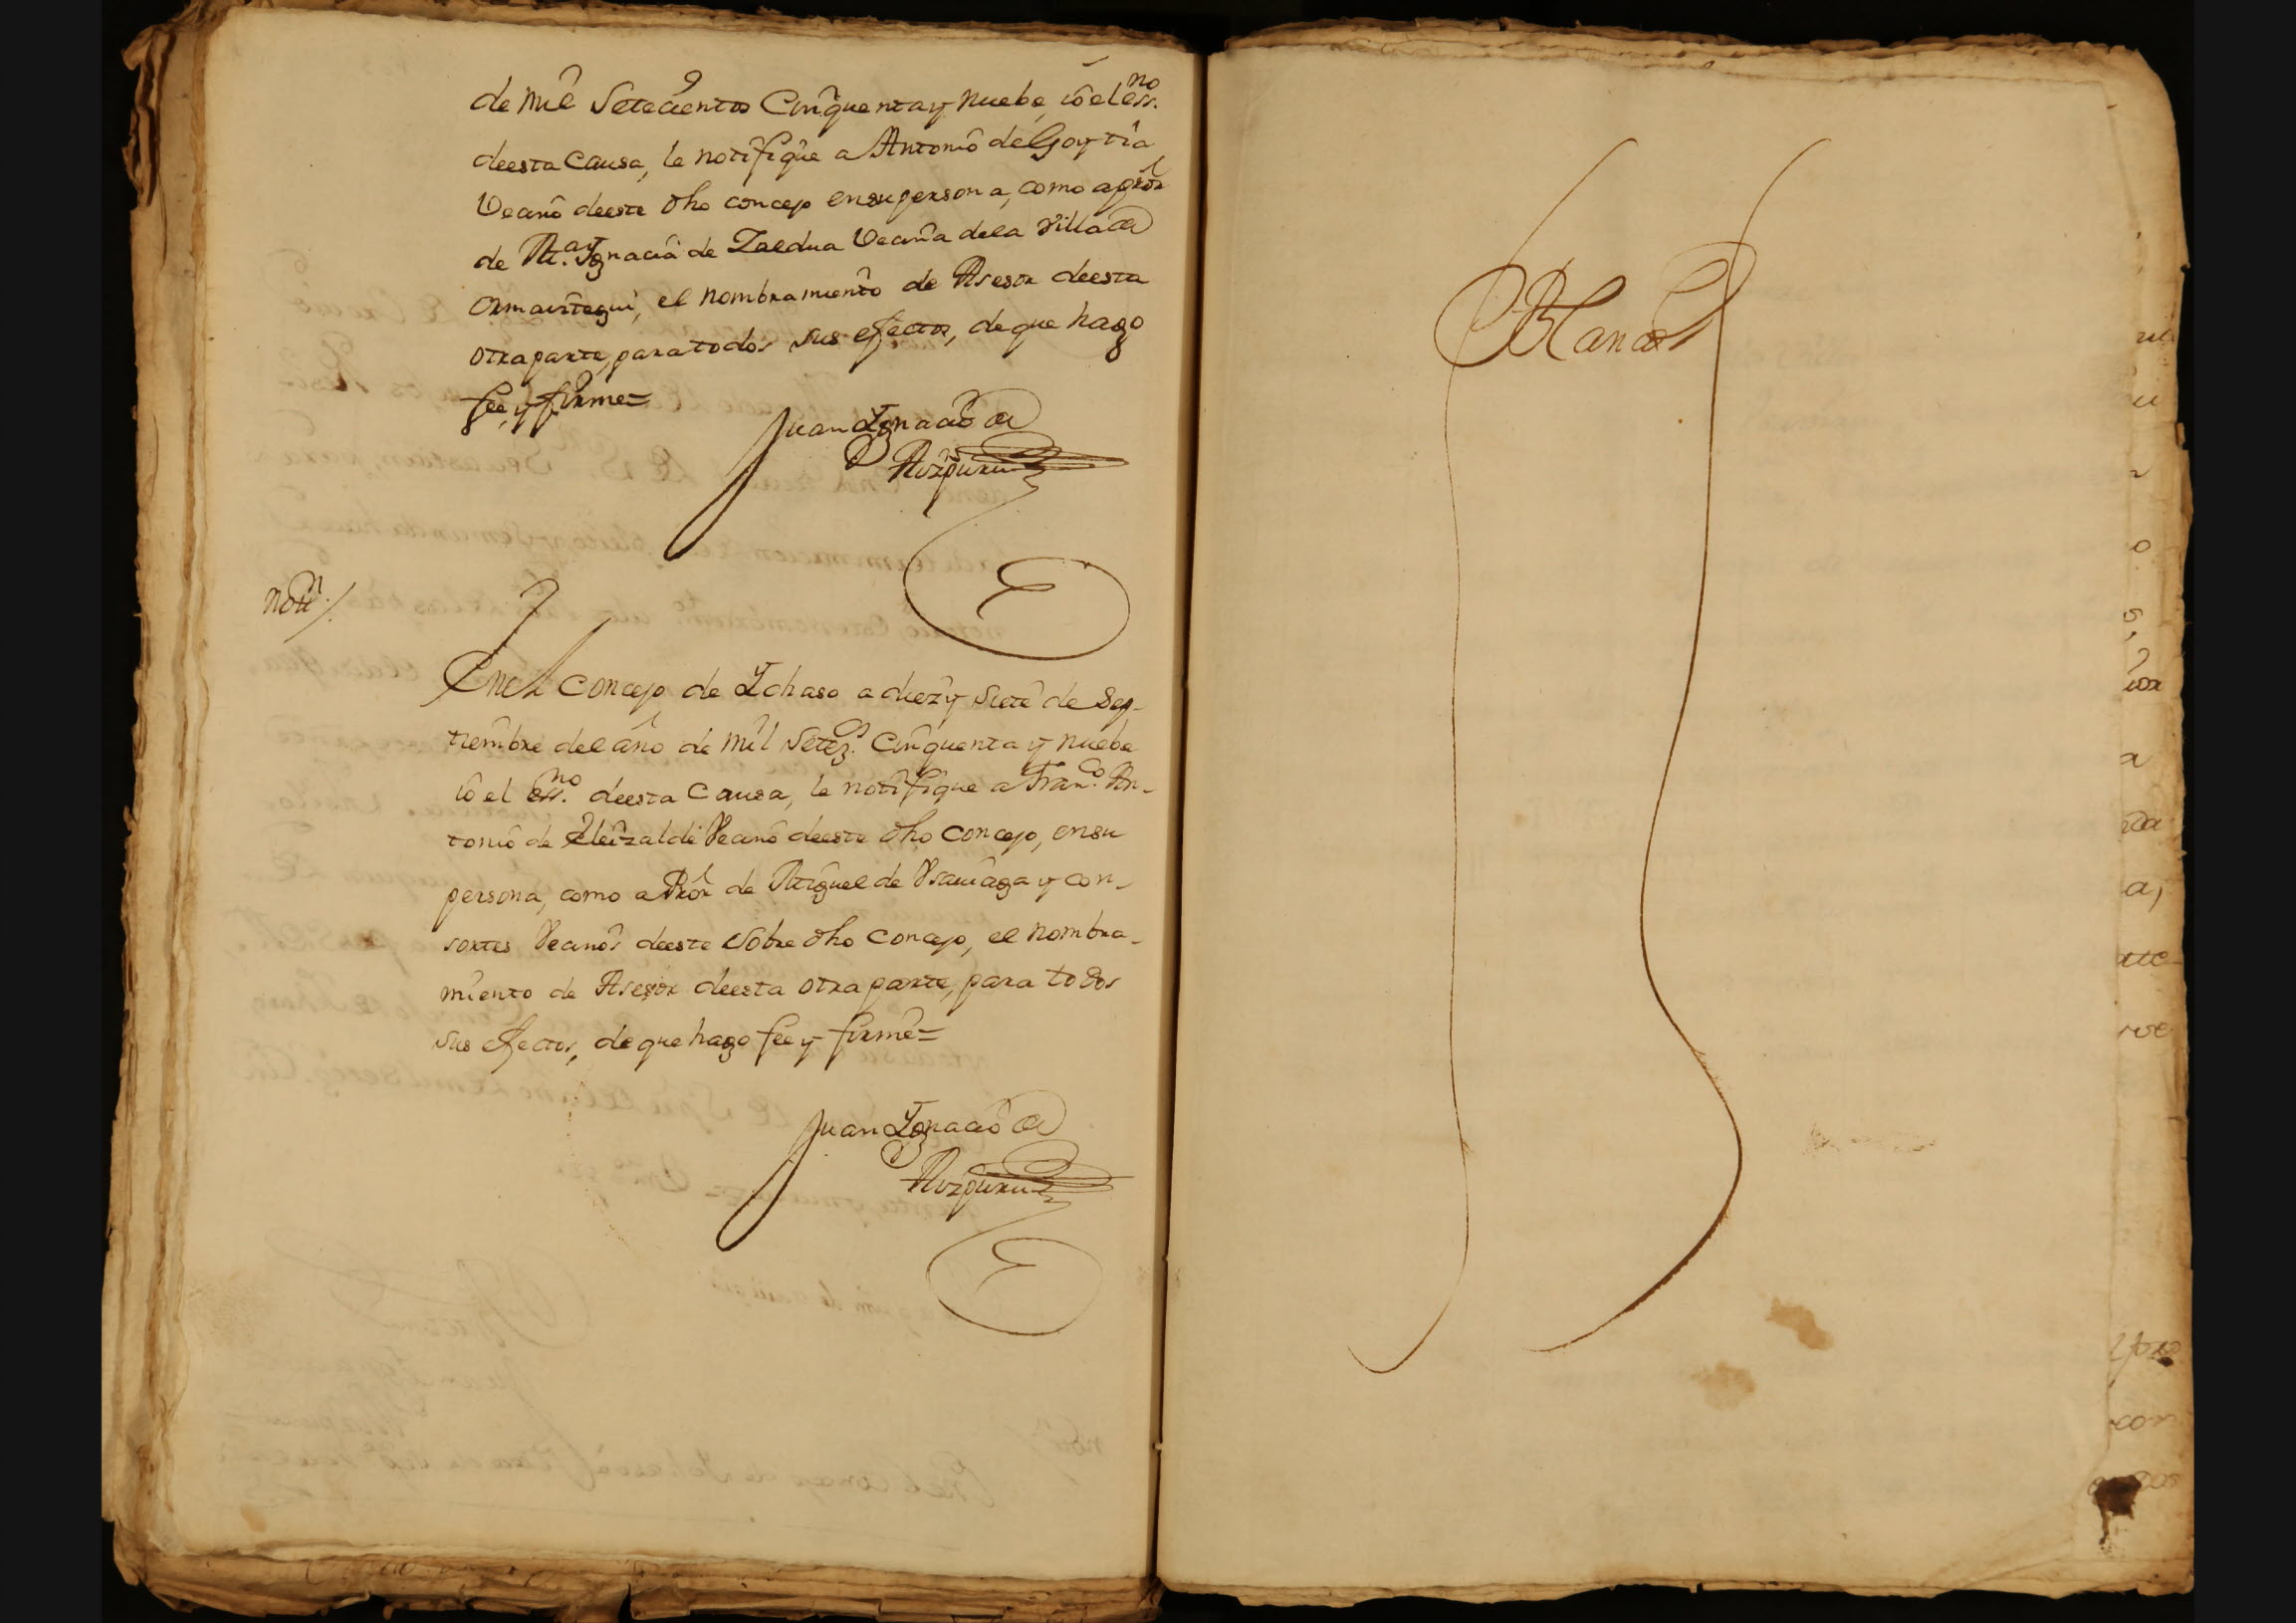 de mil Setecientos Cinquenta y nuebe, io el essno.
de esta Causa, le notifique a Antonio de Goytia
Vecino de este dho concejo en su persona, como a pror
de Ma. Ygnacia de Zaldua Vecina de la Villa de
Ormaiztegui, el nombramiento de Asesor de esta
otra parte, para todos sus efectos, de que hago
fee, y firme=
Juan Ygnacio de
Aozpuru
Notn./.
En el concejo de Ychaso a diez y siete de Sep-
tiembre del año de mil setezs. Cinquenta y nuebe
io el essno. de esta Causa, le notifique a Franco. An-
tonio de Eleizalde Vecino de este dho concejo, en su
persona, como a Pror de Miguel de Vsauiaga y con-
sortes Vecinos de este sobre dho concejo, el nombra-
miento de Asesor de esta otra parte, para todos
sus efectos, de que hago fee y firme=
Juan Ygnacio de
Aozpuru
Blanco